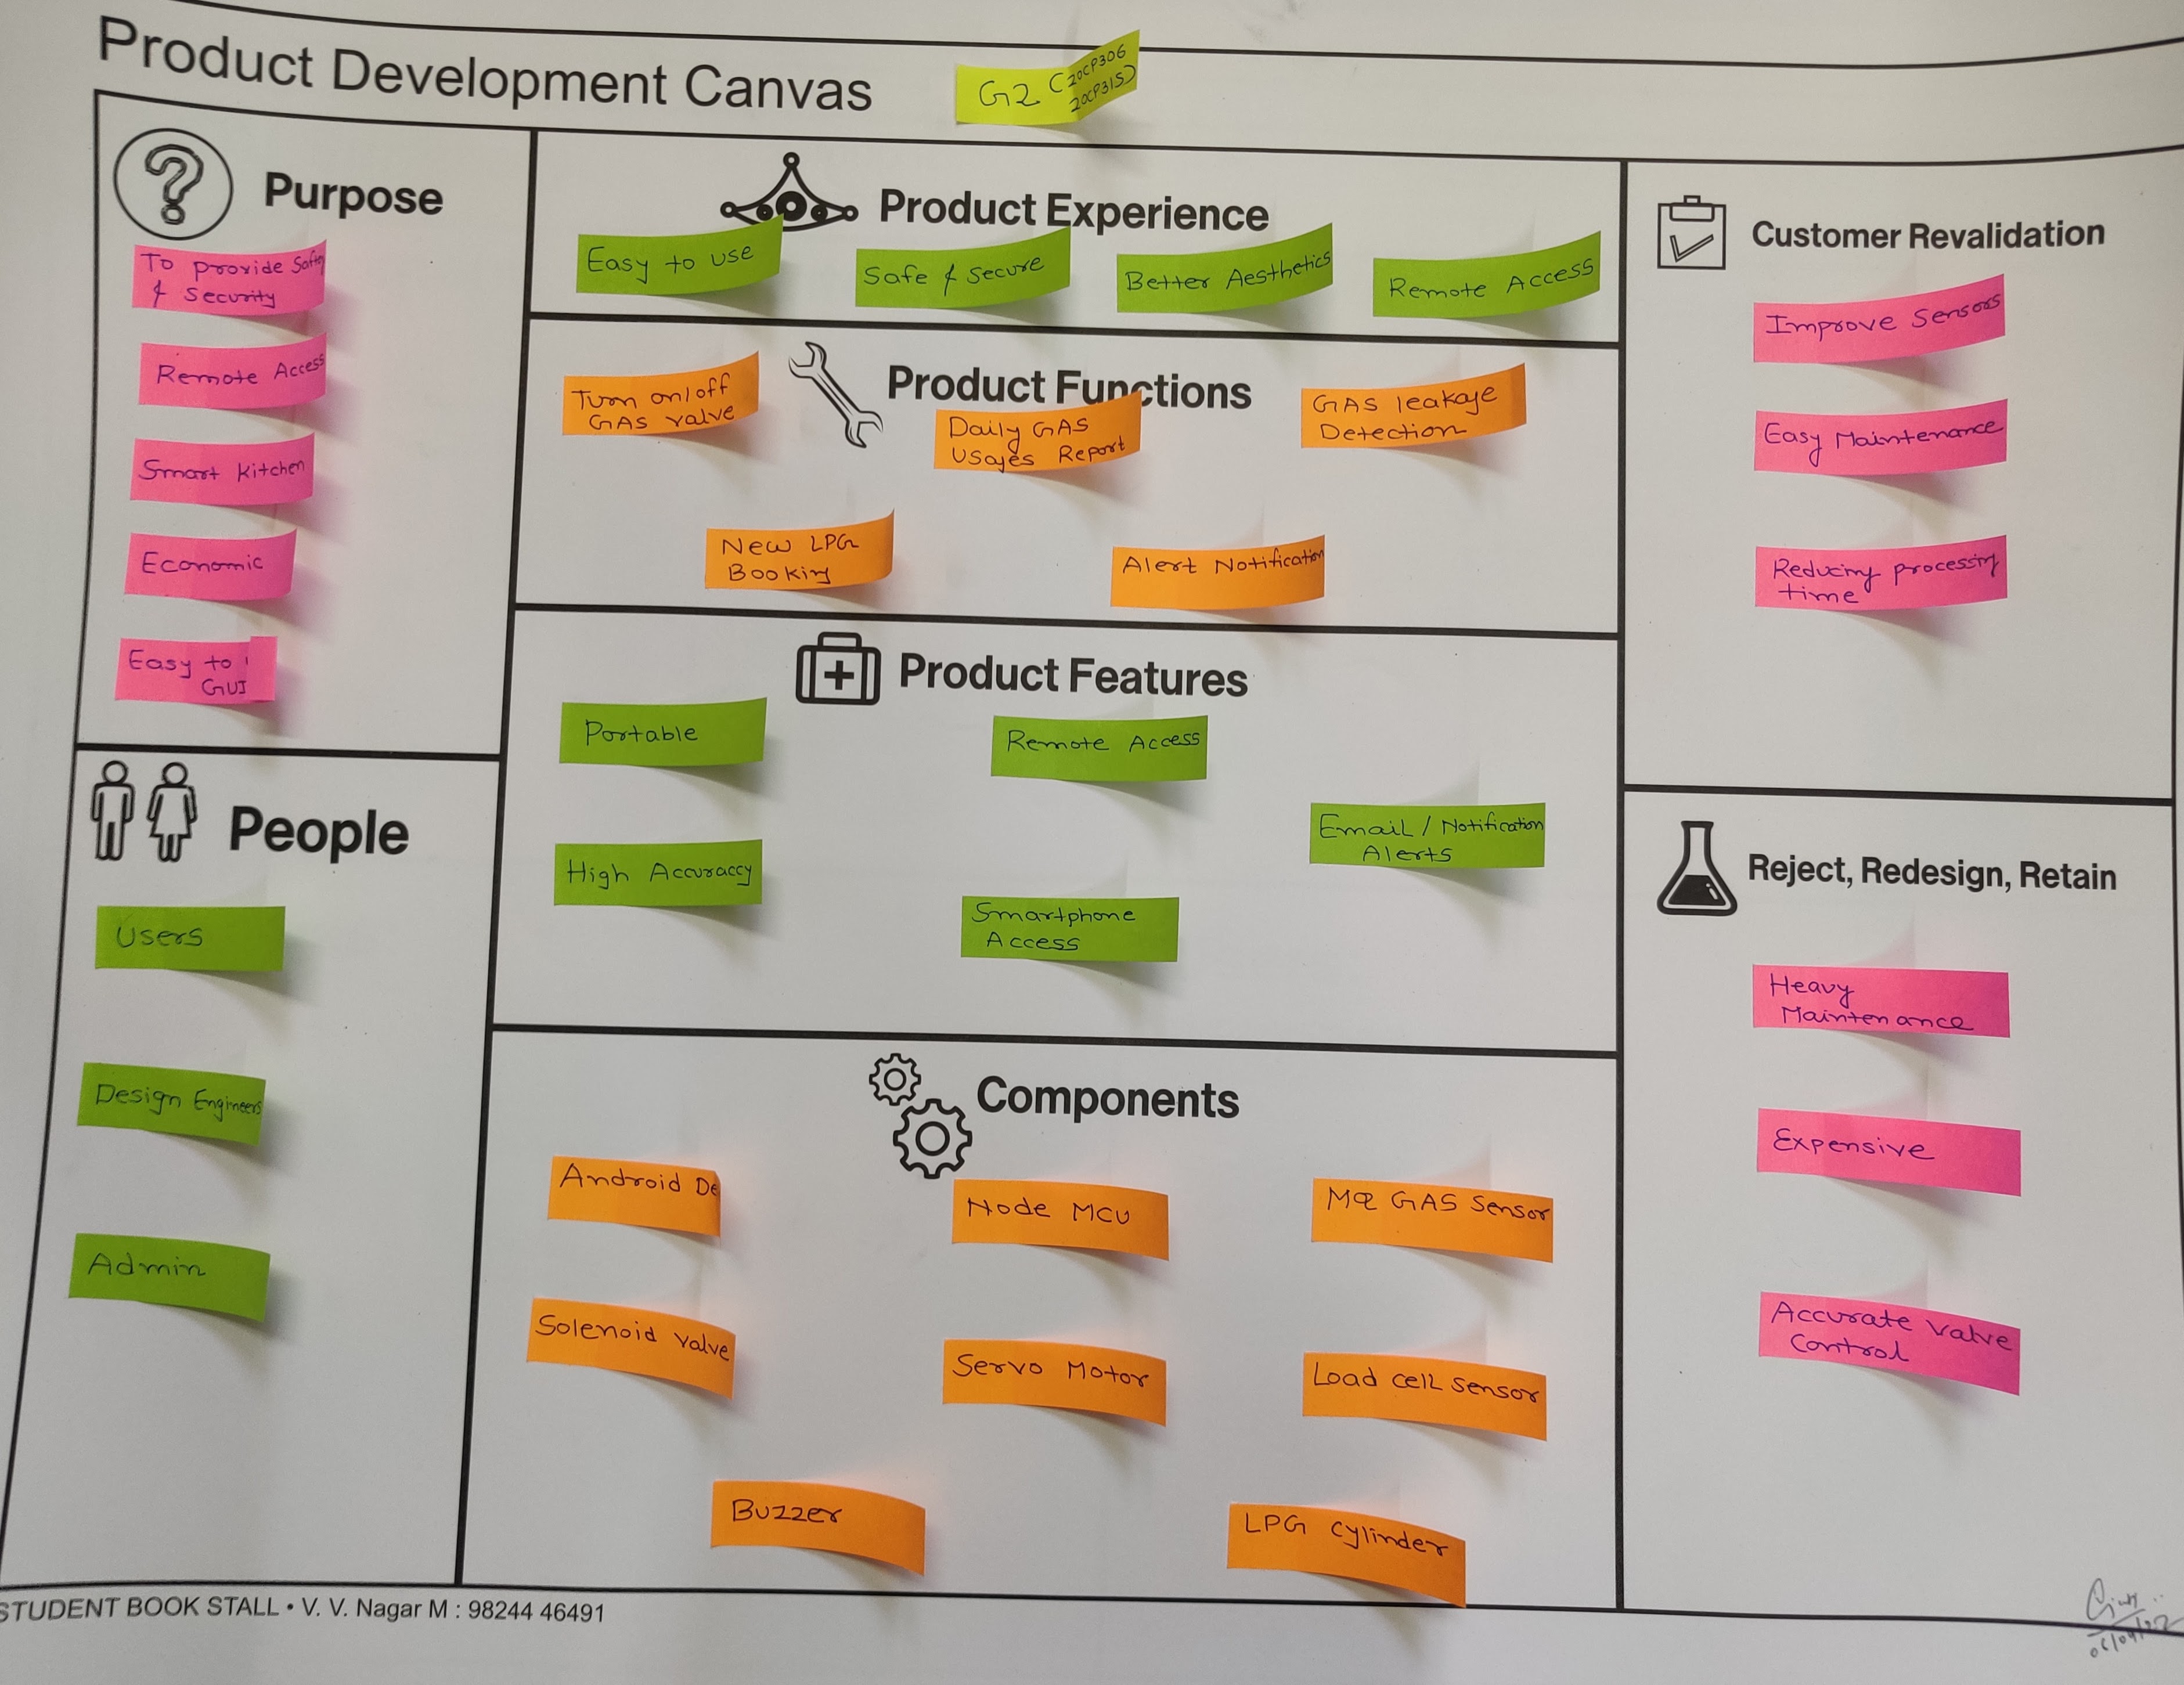 Product Development Canvas
G2 (20CP306
20CP315)
Purpose
To provide Safety
& Security
Remote Access
Smart Kitchen
Economic
Easy to
GUI
People
Users
Design Engineers
Admin
Product Experience
Easy to use
Safe & Secure
Better Aesthetics
Remote Access
Product Functions
Turn on/off
GAS valve
Daily GAS
Usages Report
GAS leakage
Detection
New LPG
Booking
Alert Notification
Product Features
Portable
Remote Access
Email / Notification
Alerts
High Accuraccy
Smartphone
Access
Components
Android De
Node MCU
MQ GAS Sensor
Solenoid valve
Servo Motor
Load cell sensor
Buzzer
LPG Cylinder
Customer Revalidation
Improve Sensors
Easy Maintenance
Reducing processing
time
Reject, Redesign, Retain
Heavy
Maintenance
Expensive
Accurate valve
Control
STUDENT BOOK STALL • V. V. Nagar M : 98244 46491